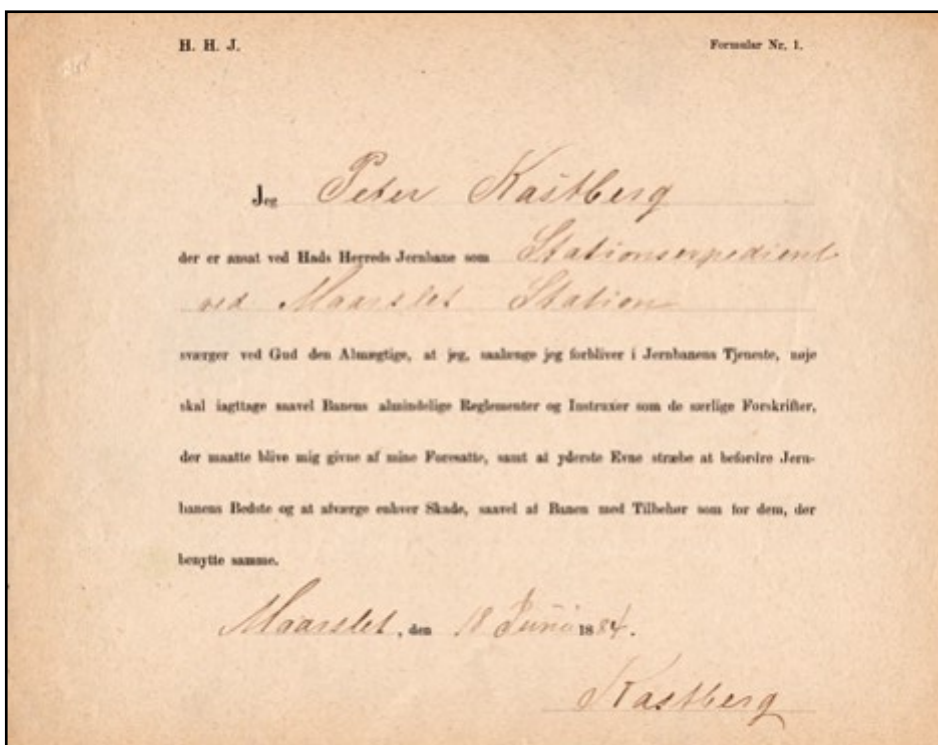 H. H. J. Formular Nr. 1.
Jeg Peter Kastberg
der er ansat ved Hads Herreds Jernbane som Stationsexpedient
ved Maarslet Station
sværger ved Gud den Almægtige, at jeg, saalænge jeg forbliver i Jernbanens Tjeneste, nøje
skal iagttage saavel Banens almindelige Reglementer og Instruxer som de særlige Forskrifter,
der maatte blive mig givne af mine Foresatte, samt af yderste Evne stræbe at befordre Jern-
banens Bedste og at afværge enhver Skade, saavel af Banen med Tilbehør som for dem, der
benytte samme.
Maarslet, den 18 Juni 1884.
Kastberg